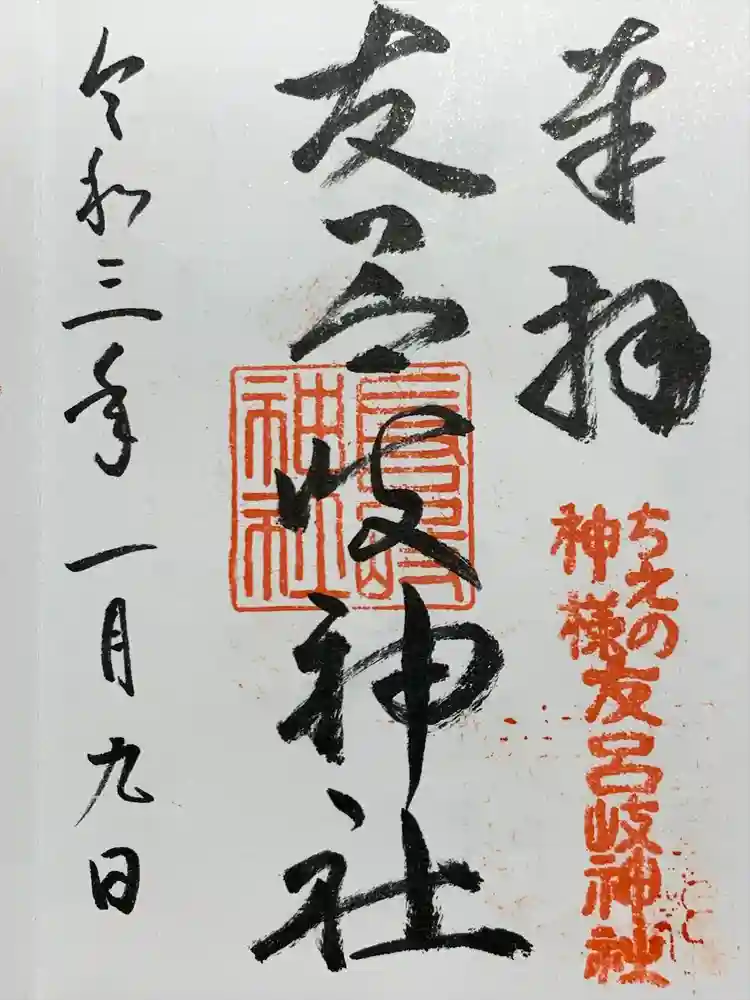 奉拝
ちえの
神様
友呂岐神社
友呂岐神社
令和三年一月九日